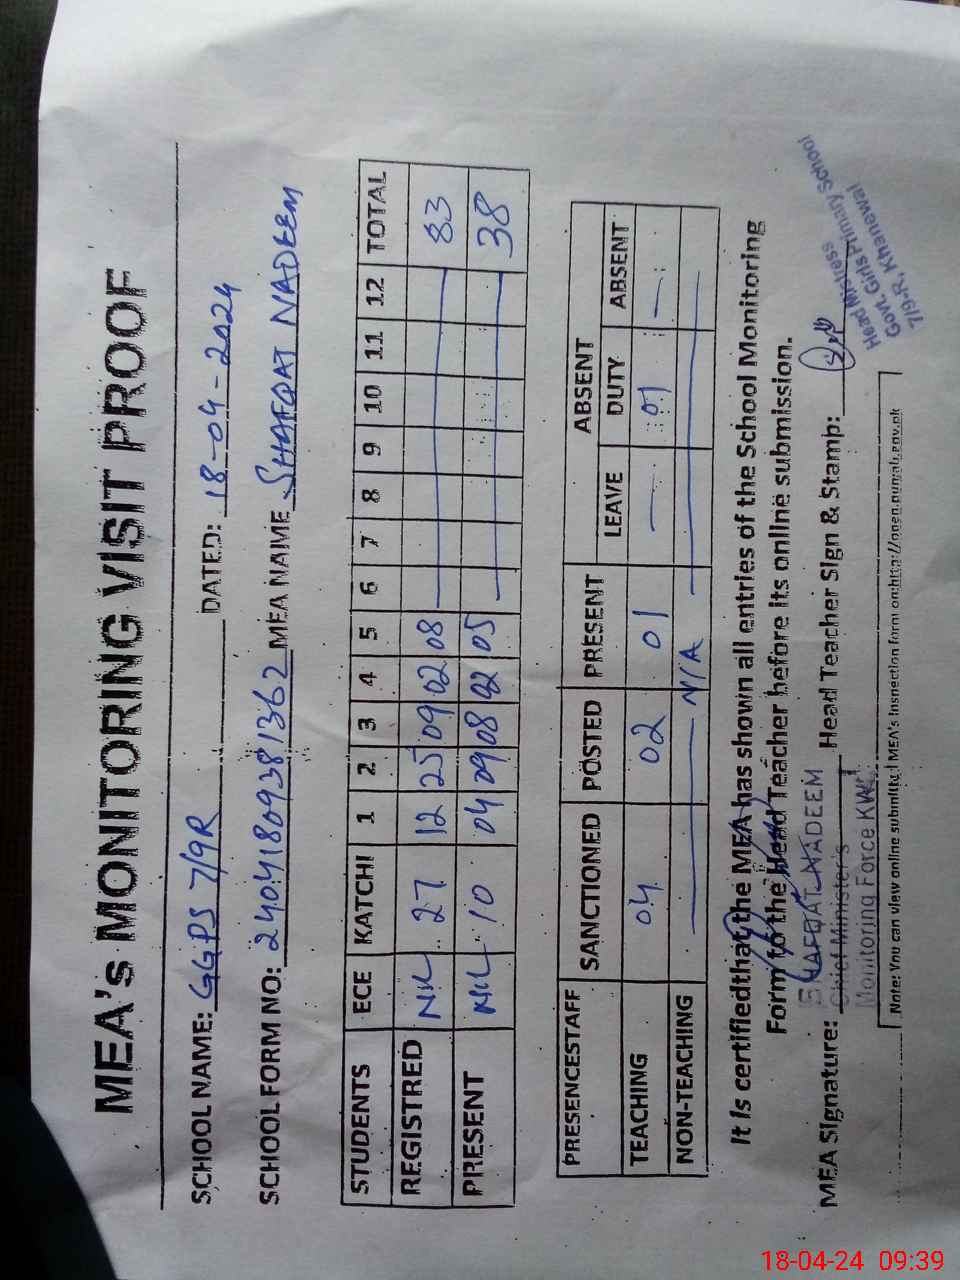 MEA's MONITORING VISIT PROOF
SCHOOL NAME: GGPS 7/9R DATED: 18-04-2024
SCHOOL FORM NO: 24041809381362 MEA NAME SHAFQAT NADEEM
STUDENTS ECE KATCHI 1 2 3 4 5 6 7 8 9 10 11 12 TOTAL
REGISTRED NIL 27 12 25 09 02 08 83
PRESENT NIL 10 04 09 08 02 05 38
PRESENCESTAFF SANCTIONED POSTED PRESENT ABSENT
LEAVE DUTY ABSENT
TEACHING 04 02 01 — 01 —
NON-TEACHING N/A
It Is certifiedthat the MEA has shown all entries of the School Monitoring
Form to the Head Teacher before its online submission.
MEA Signature: Head Teacher Sign & Stamp:
SHAFQAT NADEEM
Chief Minister's
Monitoring Force KWL
Head Mistress
Govt. Girls Primary School
7/9-R, Khanewal
Note: You can view online submitted MEA's Inspection form on:http://open.punjab.gov.pk
18-04-24 09:39